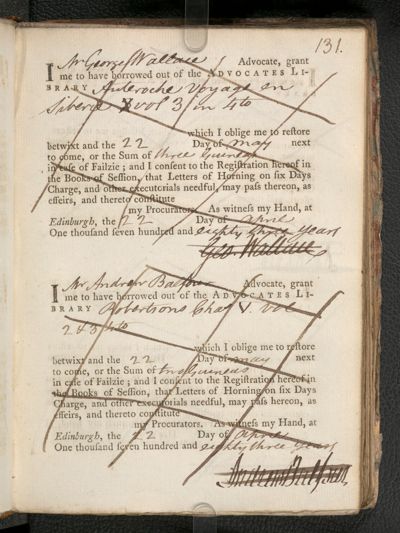 131.
I Mr George Wallace Advocate, grant
me to have borrowed out of the ADVOCATES LI-
BRARY Auteroche Voyage en
Siberie X vol 3 in 4to
which I oblige me to restore
betwixt and the 22 Day of May next
to come, or the Sum of three Guineas
in case of Failzie; and I consent to the Registration hereof in
the Books of Session, that Letters of Horning on six Days
Charge, and other executorials needful, may pass thereon, as
effeirs, and thereto constitute
my Procurators. As witness my Hand, at
Edinburgh, the 22 Day of April
One thousand seven hundred and eighty three years
Geo. Wallace
I Mr Andrew Balfour Advocate, grant
me to have borrowed out of the ADVOCATES LI-
BRARY Robertsons Chas V. vol
2 & 3 4to
which I oblige me to restore
betwixt and the 22 Day of May next
to come, or the Sum of two Guineas
in case of Failzie; and I consent to the Registration hereof in
the Books of Session, that Letters of Horning on six Days
Charge, and other executorials needful, may pass hereon, as
effeirs, and thereto constitute
my Procurators. As witness my Hand, at
Edinburgh, the 22 Day of April
One thousand seven hundred and eighty three years
Andrew Balfour